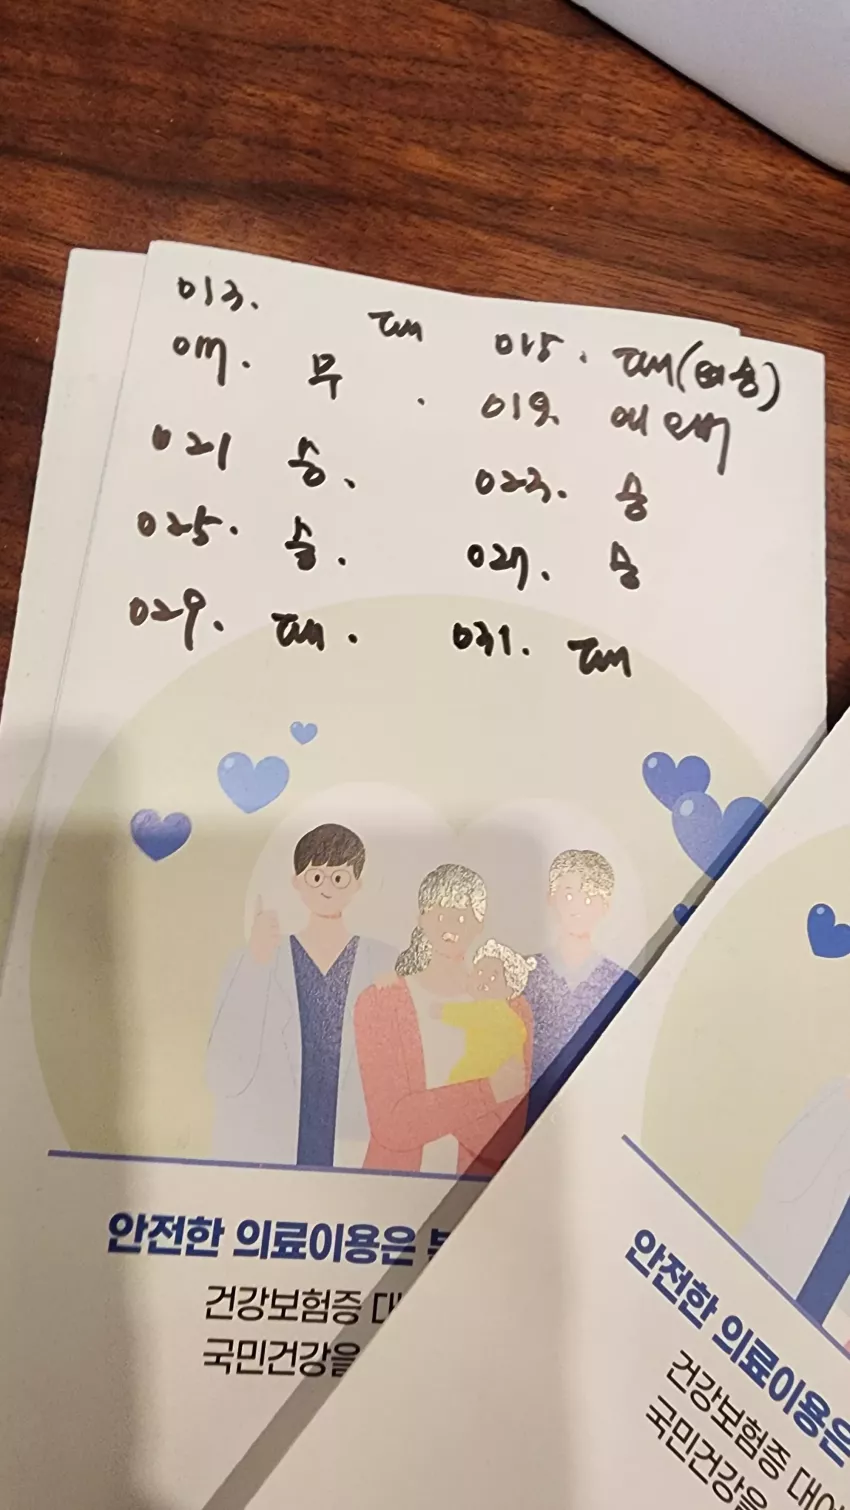 013. 패 015. 패(여승)
017. 무. 019.
021 승. 023. 승
025. 승. 027. 승
029. 패. 031. 패
안전한 의료이용은
건강보험증
국민건강을
안전한 의료이용은
건강보험증 대여
국민건강을